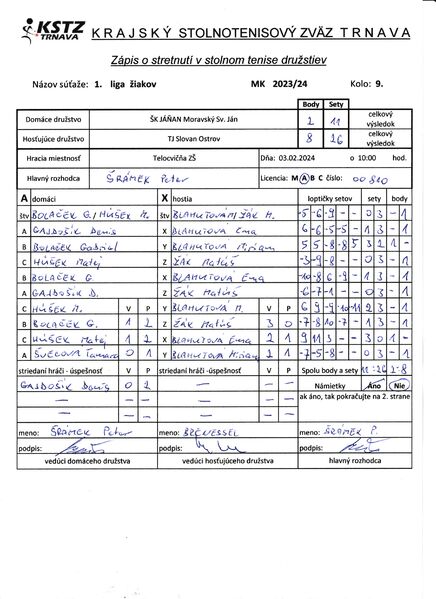 KSTZ TRNAVA KRAJSKÝ STOLNOTENISOVÝ ZVÄZ TRNAVA
Zápis o stretnutí v stolnom tenise družstiev
Názov súťaže: 1. liga žiakov MK 2023/24 Kolo: 9.
Body Sety
Domáce družstvo ŠK JÁŇAN Moravský Sv. Ján 2 11 celkový výsledok
Hosťujúce družstvo TJ Slovan Ostrov 8 26 celkový výsledok
Hracia miestnosť Telocvičňa ZŠ Dňa: 03.02.2024 o 10:00 hod.
Hlavný rozhodca ŠRÁMEK Peter Licencia: M A B C číslo: 00810
A domáci X hostia loptičky setov sety body
štv BOLAČEK G./HÚŠEK M. štv BLAHUTOVÁ M/ŽÁK M. -5 -6 -9 - - 0 3 - 1
A GAJDOŠÍK Denis X BLAHUTOVÁ Ema 6 -6 -5 -5 - 1 3 - 1
B BOLAČEK Gabriel Y BLAHUTOVÁ Miriam 5 5 -8 -8 5 3 2 1 -
C HÚŠEK Matej Z ŽÁK Matúš -3 -9 -8 - - 0 3 - 1
B BOLAČEK G. X BLAHUTOVÁ Ema -10 -8 6 -9 - 1 3 - 1
A GAJDOŠÍK D. Z ŽÁK Matúš -6 -7 -1 - - 0 3 - 1
C HÚŠEK M. V P Y BLAHUTOVÁ M. V P 6 9 -9 -10 -11 2 3 - 1
B BOLAČEK G. 1 2 Z ŽÁK Matúš 3 0 -7 -8 10 -7 - 1 3 - 1
C HÚŠEK Matej 1 2 X BLAHUTOVÁ Ema 2 1 9 11 3 - - 3 0 1 -
A ŠVECOVÁ Tamara 0 1 Y BLAHUTOVÁ Miriam 2 1 -7 -5 -8 - - 0 3 - 1
striedaní hráči - úspešnosť V P striedaní hráči - úspešnosť V P Spolu body a sety 11:26 2:8
GAJDOŠÍK Denis 0 2 — — — Námietky Áno Nie
— — — — — — ak áno, tak pokračujte na 2. strane
— — — — — —
meno: ŠRÁMEK Peter meno: meno: ŠRÁMEK P.
podpis: podpis: podpis:
vedúci domáceho družstva vedúci hosťujúceho družstva hlavný rozhodca